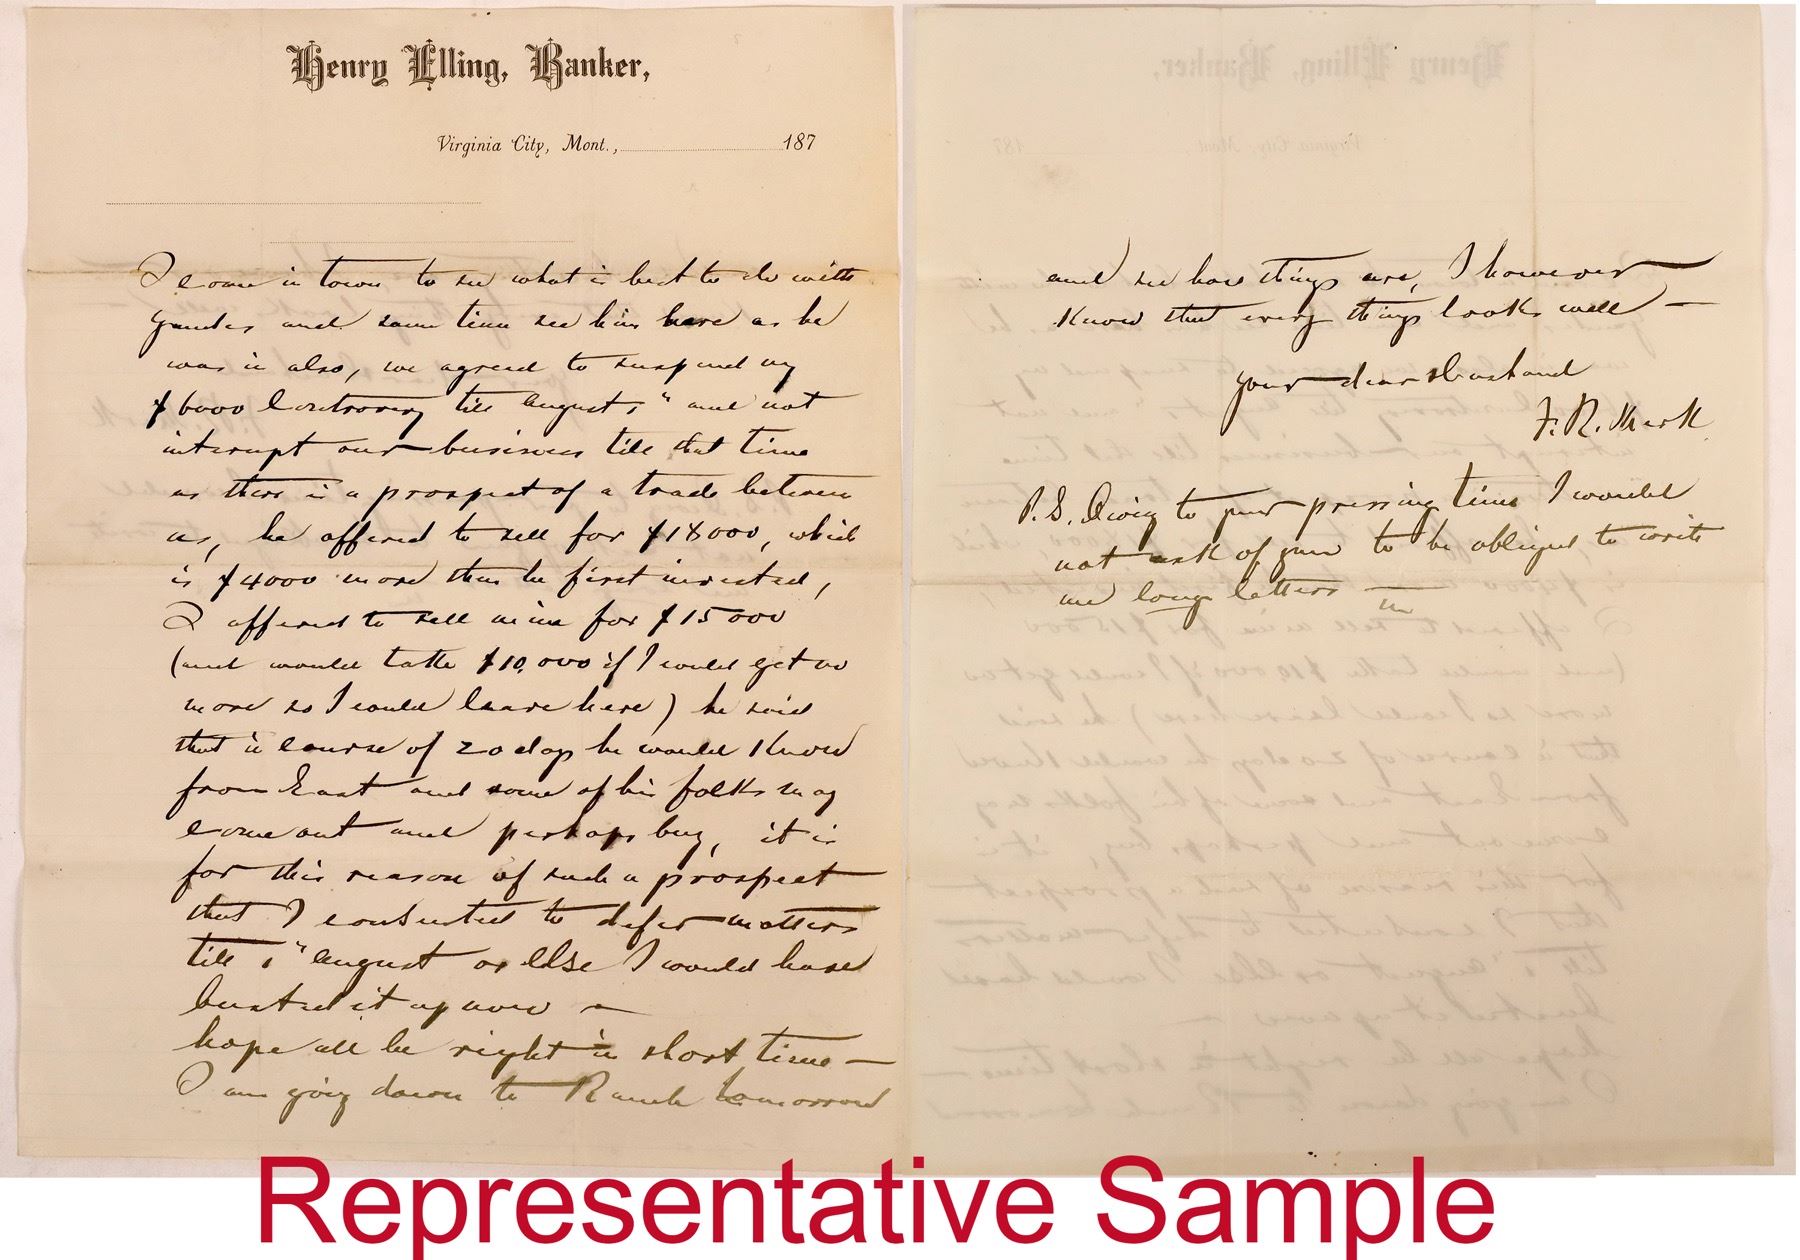 Henry Elling, Banker,
Virginia City, Mont., 187
I come in town to see what is best to do with
and same time see him here as he
was in also, we agreed to suspend my
$6000 Controversy till August 1" and not
interrupt our business till that time
as there is a prospect of a trade between
us, he offered to sell for $18000, which
is $4000 more than he first invested,
I offered to sell mine for $15000
(and would take $10,000 if I could get no
more so I could leave here) he said
that in course of 20 days he would Know
from East and some of his folks may
come out and perhaps buy, it is
for this reason of such a prospect
that I consented to defer matters
till 1" August or Else I would have
busted it up now –
hope all be right in short time –
I am going down to Ranch tomorrow
and see how things are, I however
Know that every things looks well –
your dear Husband
F. R. Merk
P.S. Owing to your pressing time I would
not ask of you to be obliged to write
me long letters –
Representative Sample